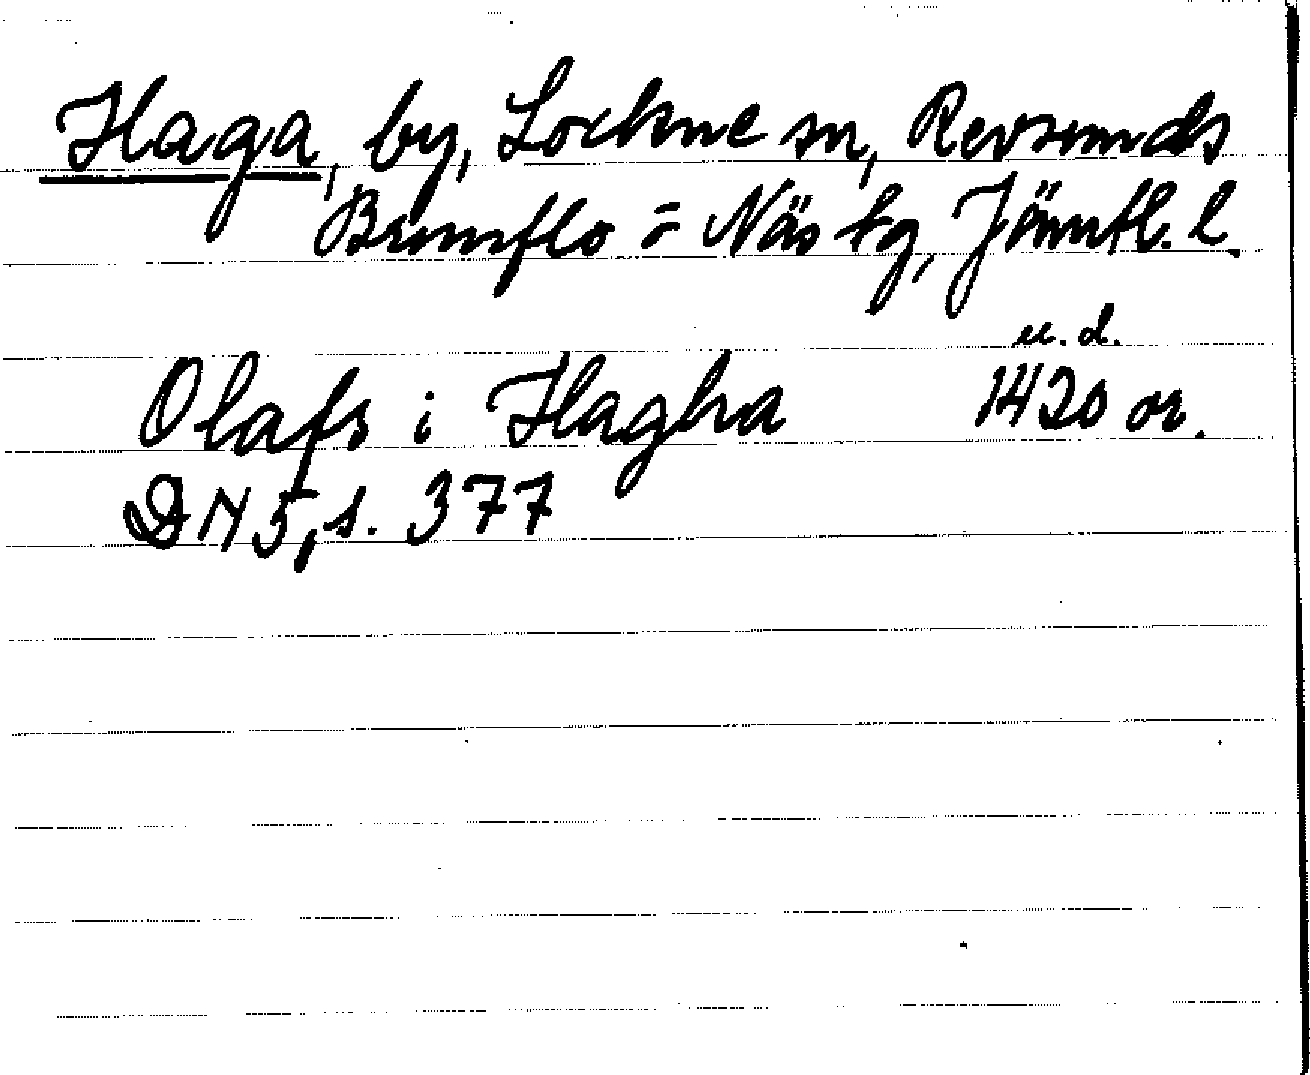 Haga, by, Lockne sn, Revsunds
Brunflo = Näs tg, Jämtl. l.
u. d.
Olafs i Hagha 1420 or.
DN 5, s. 377